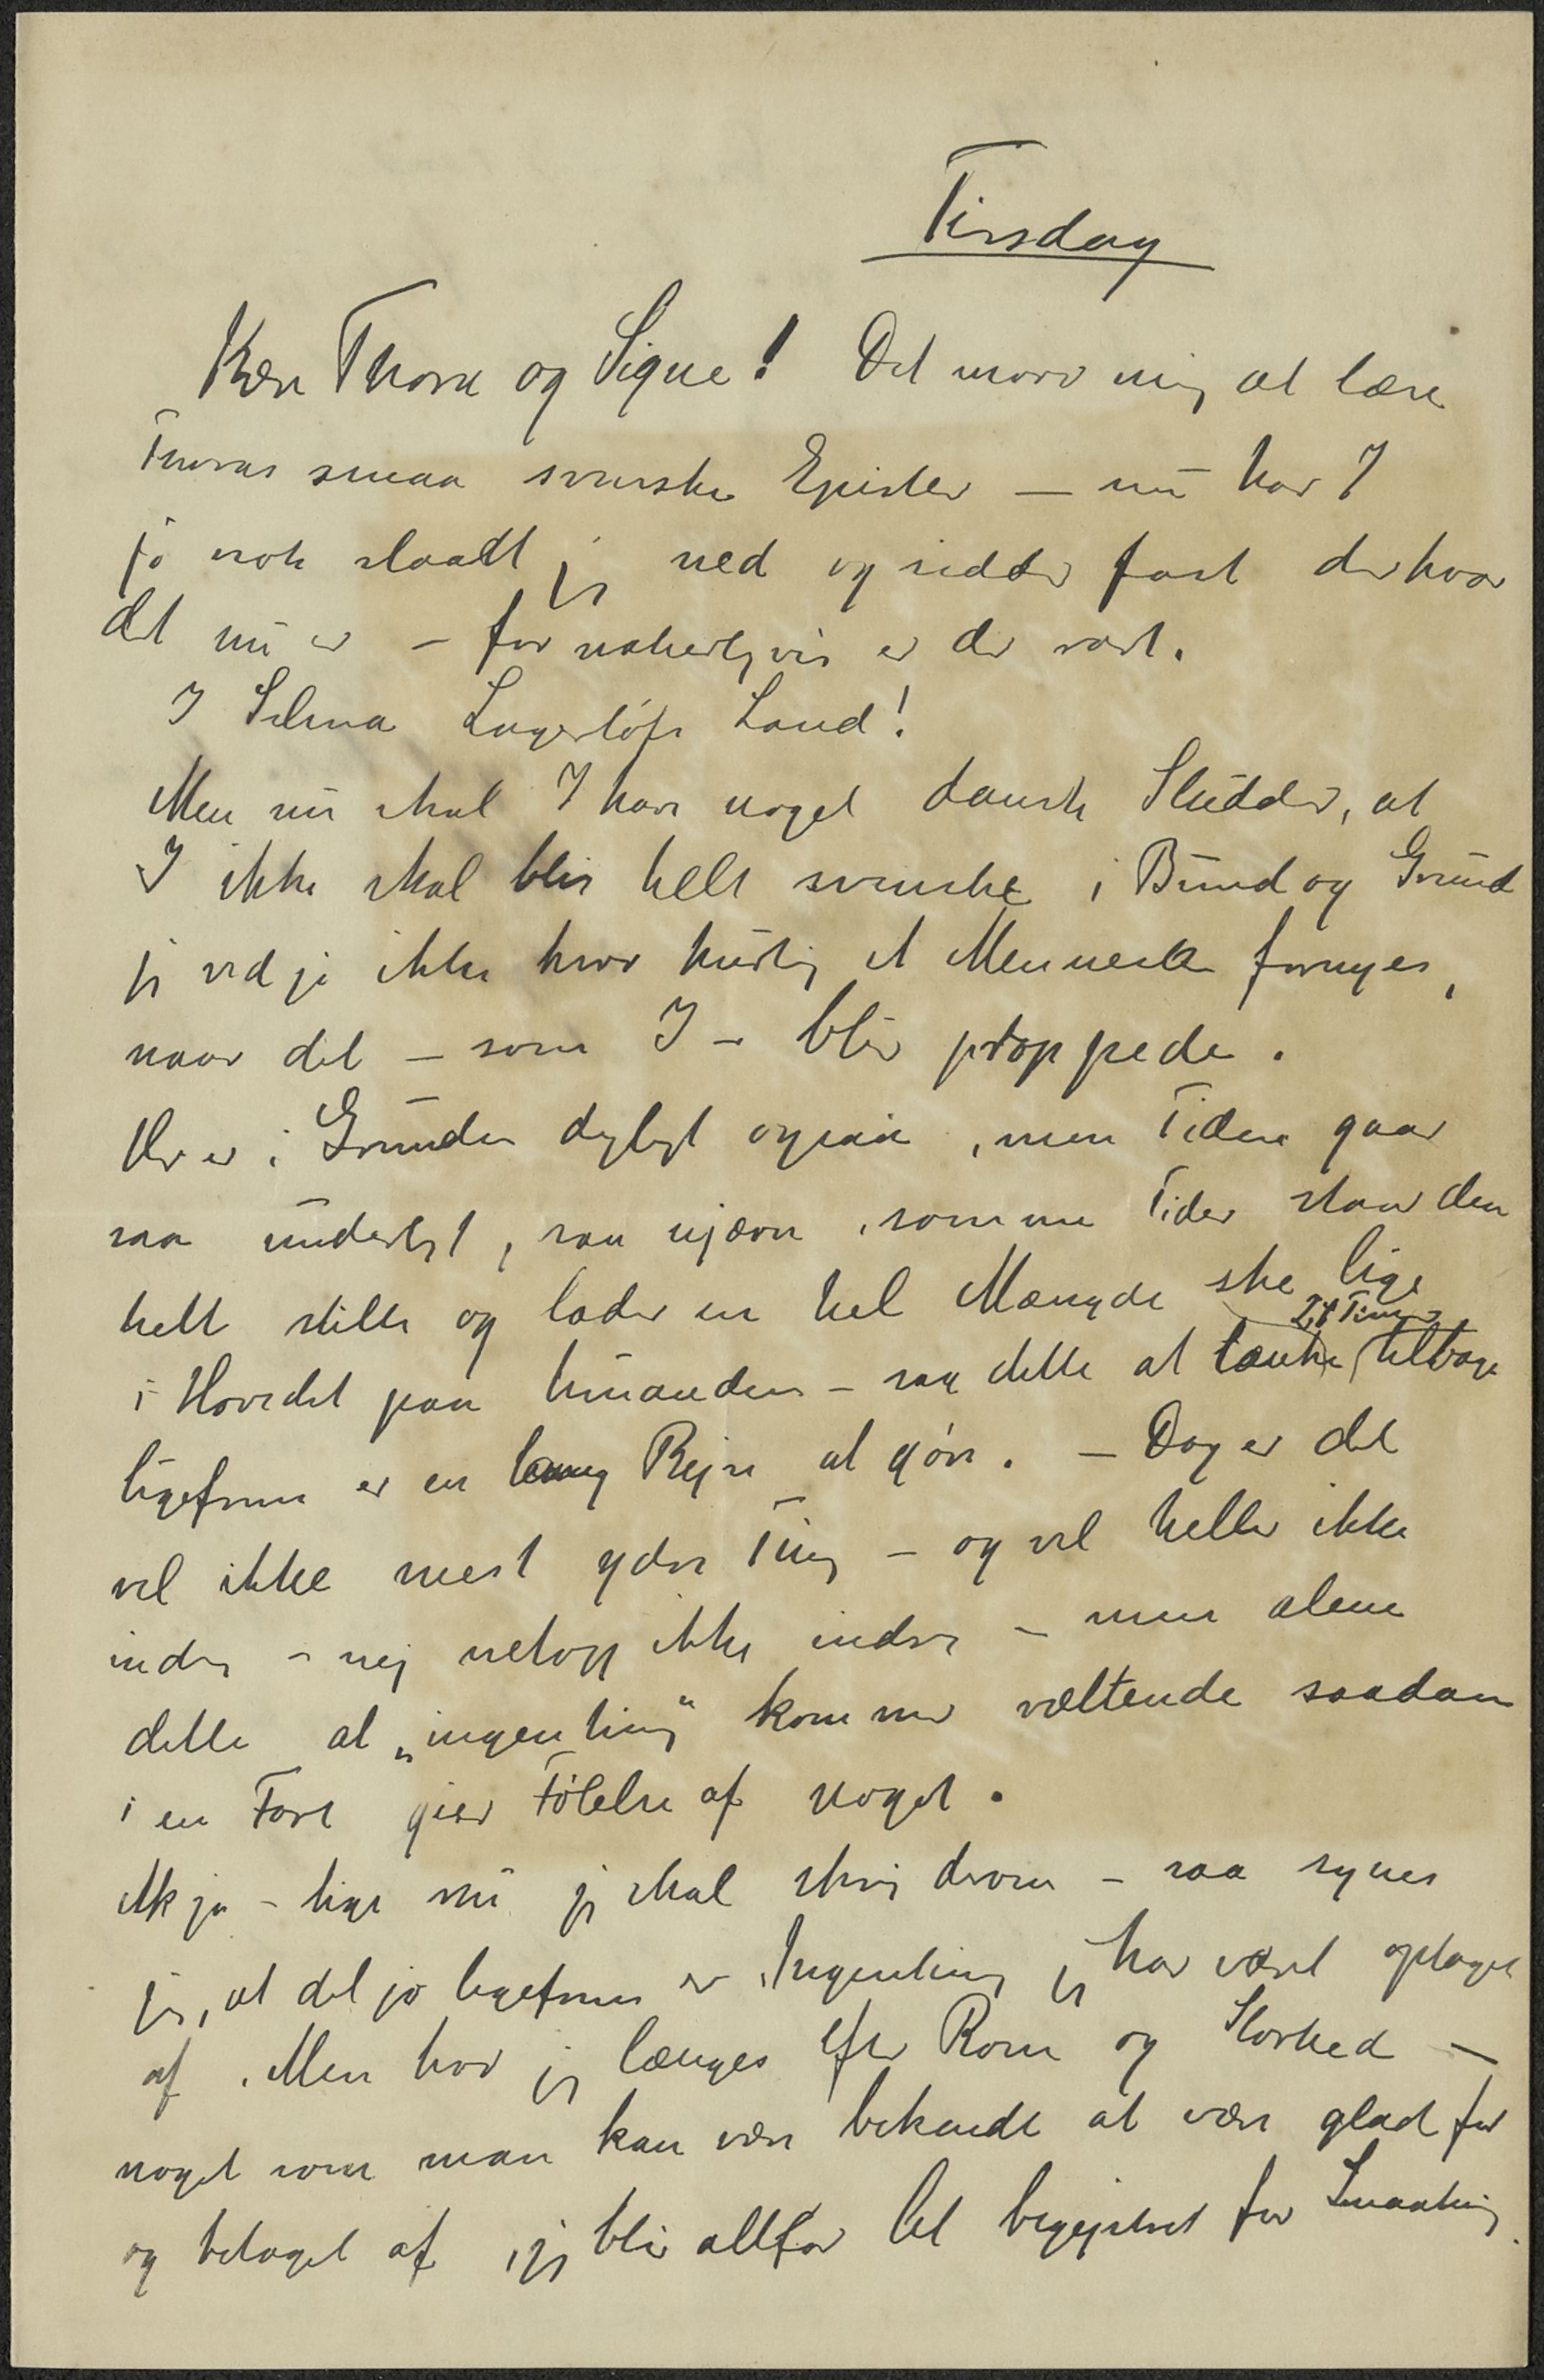 Tirsdag
Kære Thora og Signe! Det morer mig at læse
Thoras smaa svenske Epistler — nu har I
jo nok slaaet jer ned og sidder fast der hvor
det nu er — for naturligvis er der rart.
I Selma Lagerløfs Land!
Men nu skal I have noget dansk Sludder, at
I ikke skal blive helt svenske i Bund og Grund
jeg ved jo ikke hvor hurtig et Menneske fornyes,
naar det — som I — bliver proppede.
Her er i Grunden dejligt ogsaa, men Tiden gaar
saa underligt, saa ujævn, somme Tider staar den
helt stille og lader en hel Mængde ske lige
i Hovedet paa hinanden — saa dette at tænke 24 Timer tilbage
ligefrem er en lang Rejse at gøre. — Dog er det
vel ikke mest ydre Ting — og vel heller ikke
indre — nej netop ikke indre — men alene
dette at „ingenting" kommer væltende saadan
i en Fart giver Følelse af noget.
Ak ja — lige nu jeg skal skrive derom — saa synes
jeg, at det jo ligefrem er Ingenting jeg har været optaget
af. Men hvor jeg længes efter Rom og Storhed —
noget som man kan være bekendt at være glad for
og betaget af, jeg bliver altfor let begejstret for Smaating.